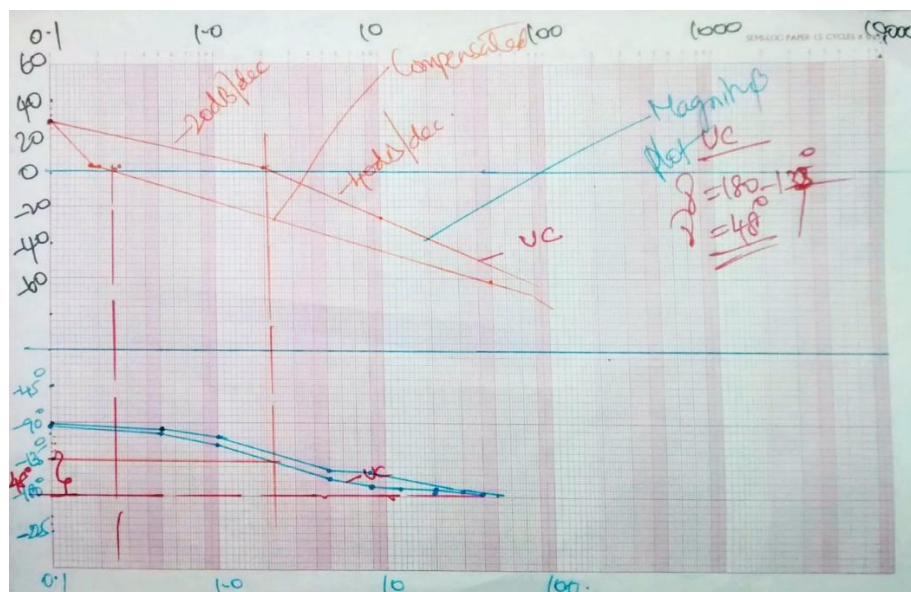 0.1 1.0 10 100 1000
SEMI-LOG PAPER (5 CYCLES X
60
40
20
0
-20
-40
-60
-20dB/dec
Compensated
-40dB/dec
Magnitude
plot UC
UC
= 48°
-45°
-90°
48°
-180°
-225
UC
0.1 1.0 10 100.